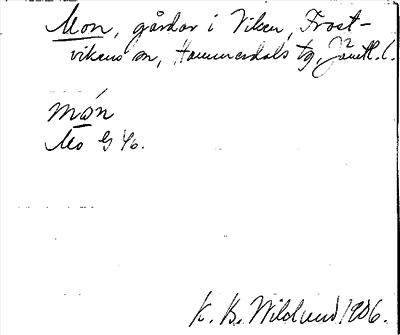 Mon, gårdar i Viken, Frost-
vikens sn, Hammerdals tg, Jämtl. l.
møn
Mo G 46.
K. B. Wiklund 1906.